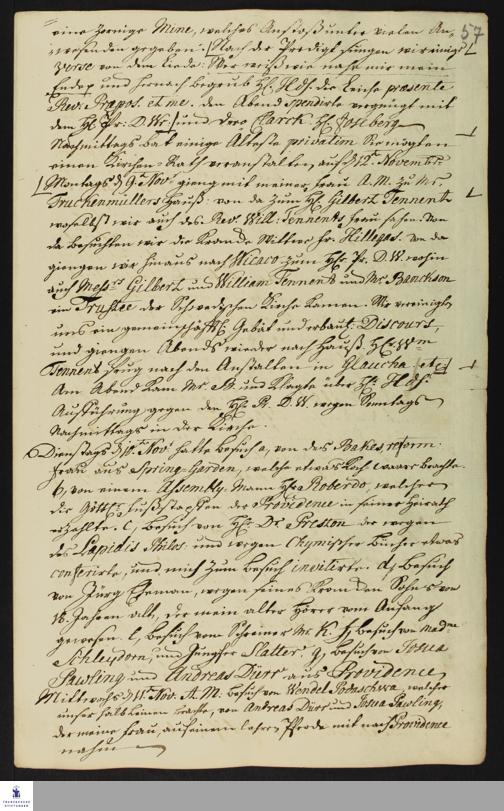 57
eine zornige Mine, welches Anstoß unter vielen An-
wesenden gegeben. Nach der Predigt sungen wir einige
Verse von dem Liede: Wer weiß wie nahe mir mein
Ende p und hernach begrub H. Hdf. die Leiche praesente
Rev: Praepos. et me. den Abend spendirte vergnügt mit
dem H. Pr: D. Wr. und dreo Clarck H.
Nachmittags bat einige Älteste privatim Sie mögten
einen Kirchen-Rath veranstalten, auf 12t. November
Montags d 9t. Nov. gieng mit meiner Frau A. M. zu Mr.
Truckenmüllers Hauß: von da zum H. Gilbert Tennent
woselbst wir auch des Rev. Will: Tennents Frau sahen. Von
da besuchten wir die Krancke Witwe Fr. Hillegas. Von da
giengen wir hinaus nach Wicaco zum H. Pr. D. W. wohin
auch Messrs Gilbert und William Tennent und Mr Banckson
ein Trustee der Schwedischen Kirche kamen. Wir vereinigten
uns ein gemeinschaftl. Gebät und erbaul. Discours,
und giengen Abends wieder nach Hauß. H. Wm
Tennent frug nach den Anstalten in Glaucha etc:
Am Abend kam Mr. und klagte über H. Hdf:
Aufführung gegen den H. P. D. W. wegen Sonntags
Nachmittags in der Kirche.
Dienstags d 10t. Nov. hatte Besuch a, von des Bakes, reform:
Frau aus Spring-Garden, welche etwas Koch waar brachte.
b, von einem Assembly-Mann H. Roberdo, welcher
die Göttl. Fußstapfen der Providence in seiner Heirath
erzählte. c, Besuch von H. Dr Preston der wegen
des Lapidis Philos: und wegen Chymischer Bücher etwas
conferirte, und mich zum Besuch invitirte. d, Besuch
von Jürg Eheman, wegen seines Krancken Sohns von
18. Jahren alt, der mein alter Hörer vom Anfang
gewesen. e, Besuch vom Schreiner Mr. K. f, Besuch von Madme
Schleydorn, und Jungfer Slatter. g, Besuch von Josua
Pawling und Andreas Dürr aus Providence
Mittwochs d 11t. Nov. A. M. Besuch von Wendel welcher
unser brachte, von Andreas Dürr und Josua Pawling,
der meine Frau, auf einem leeren Pferde mit nach Providence
nahm
FRANCKESCHE
STIFTUNGEN